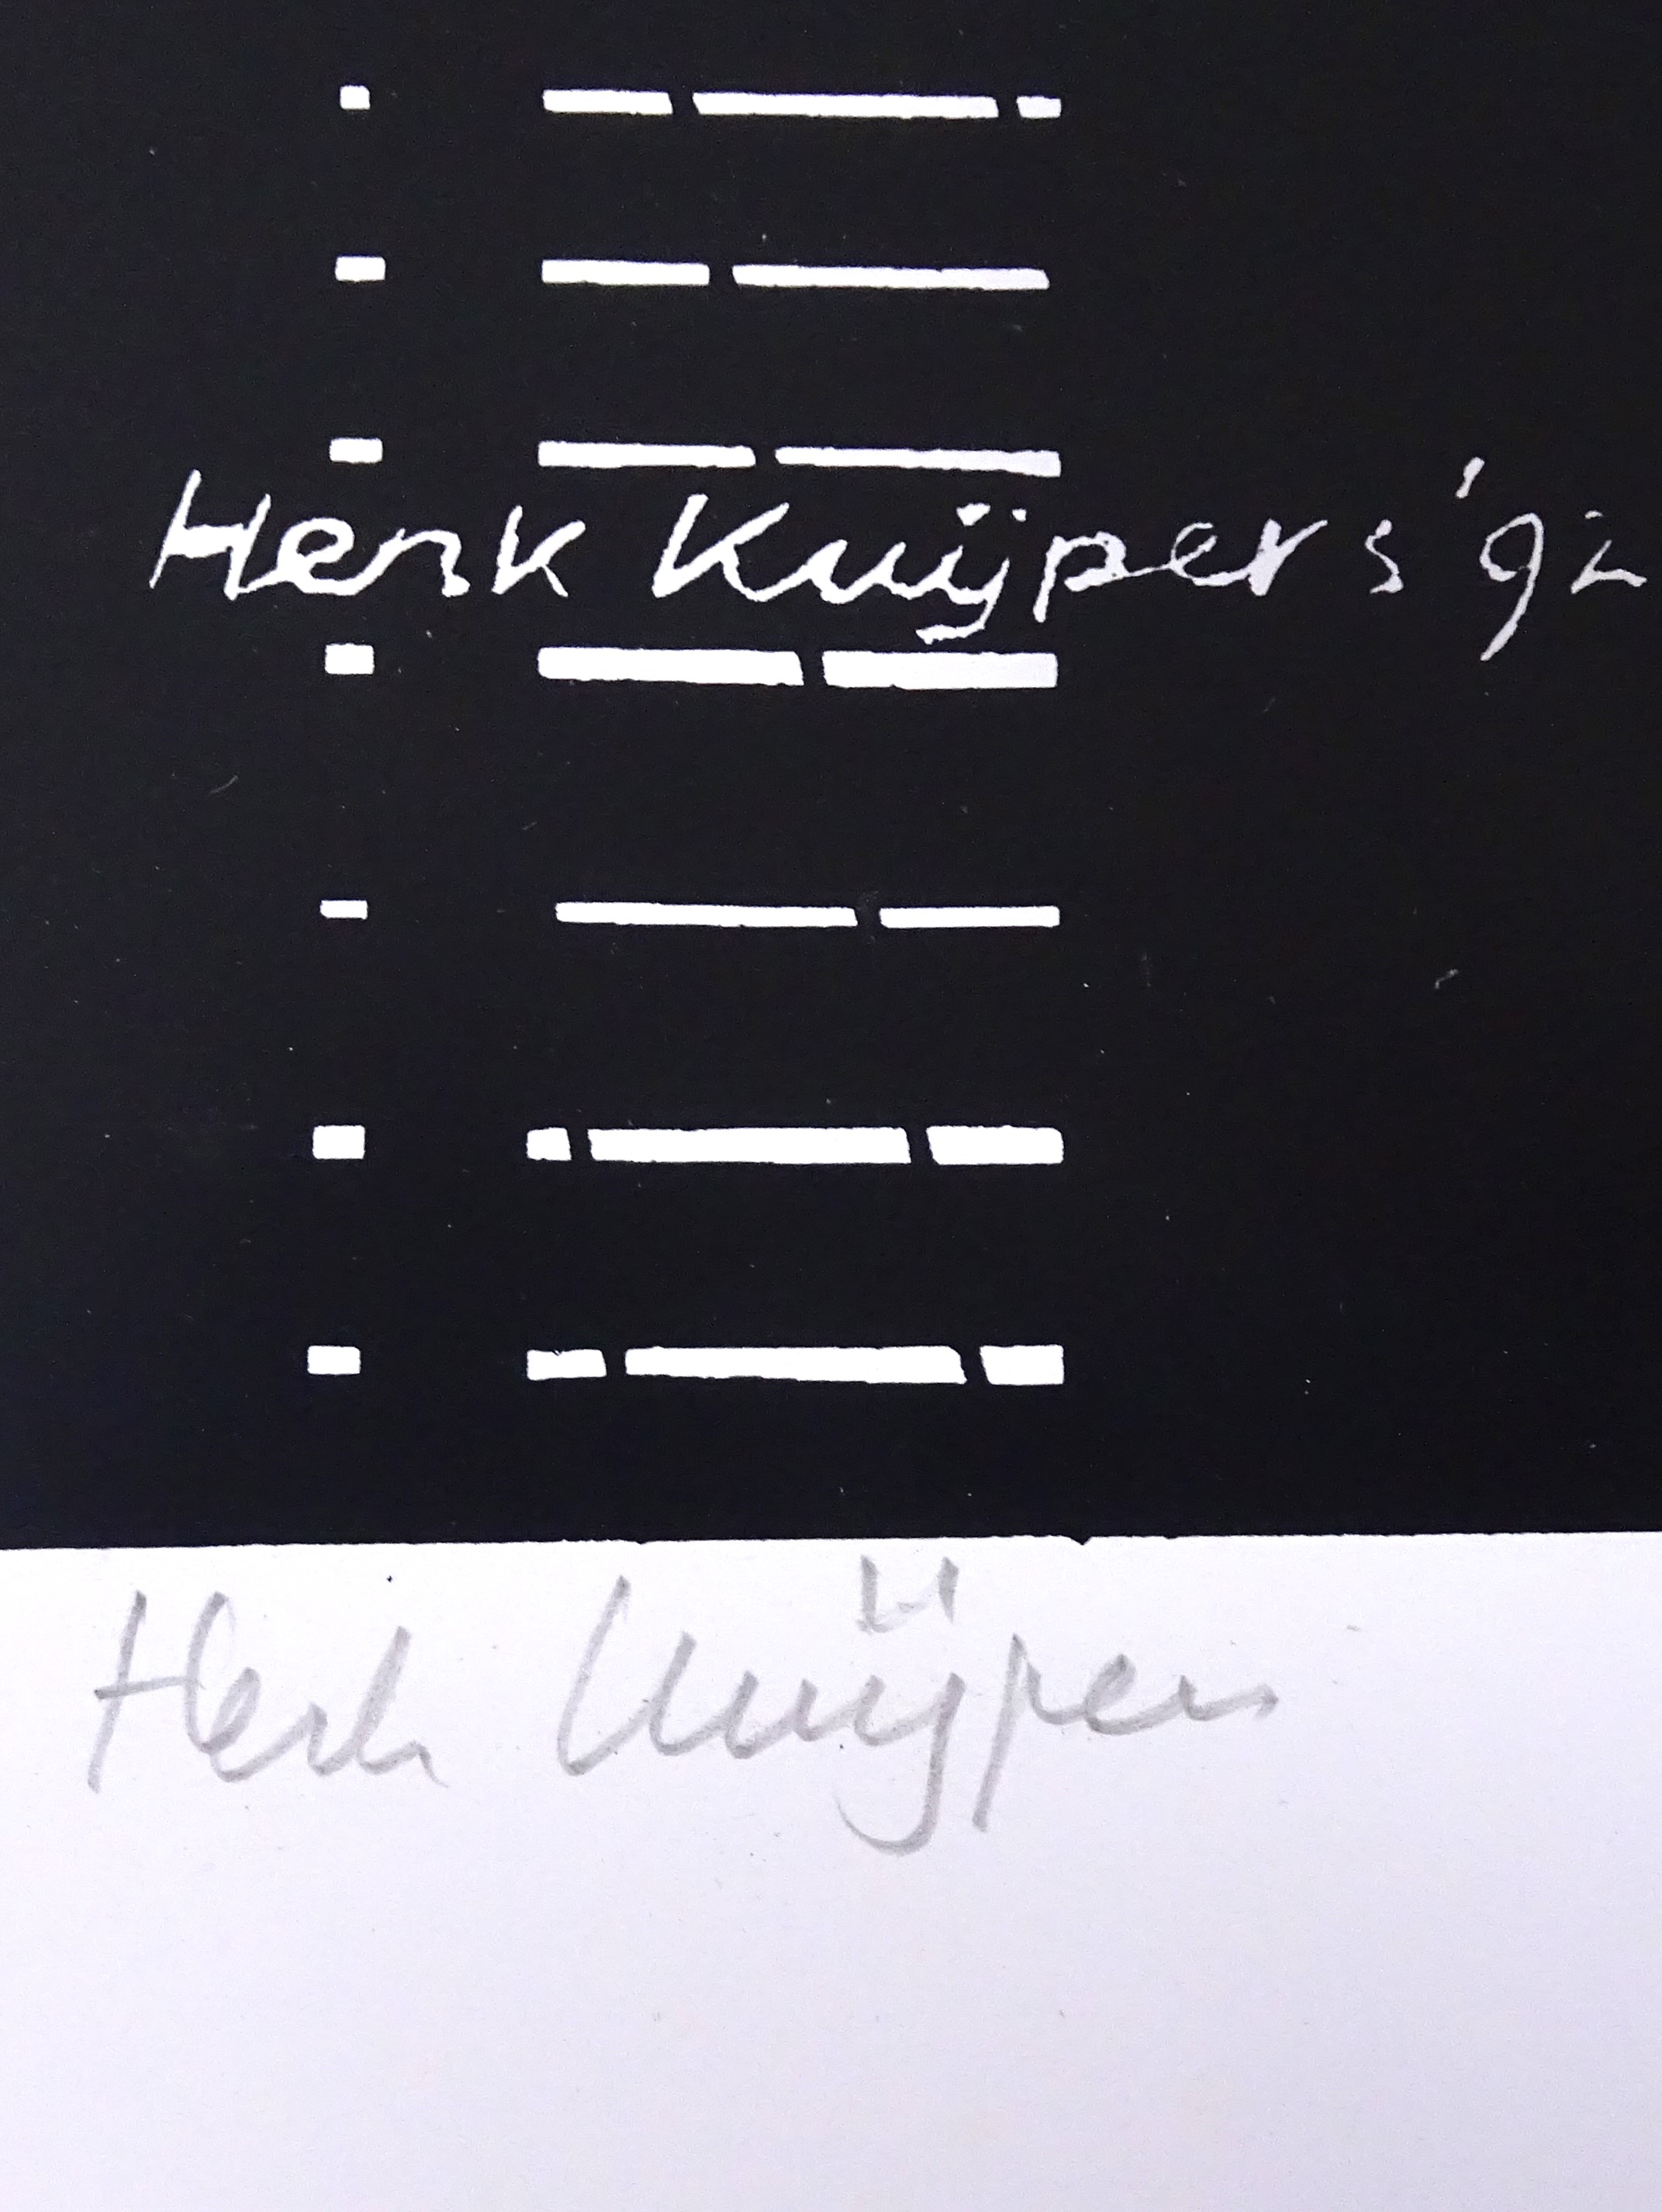 Henk Kuijpers '92
Henk Kuijpers